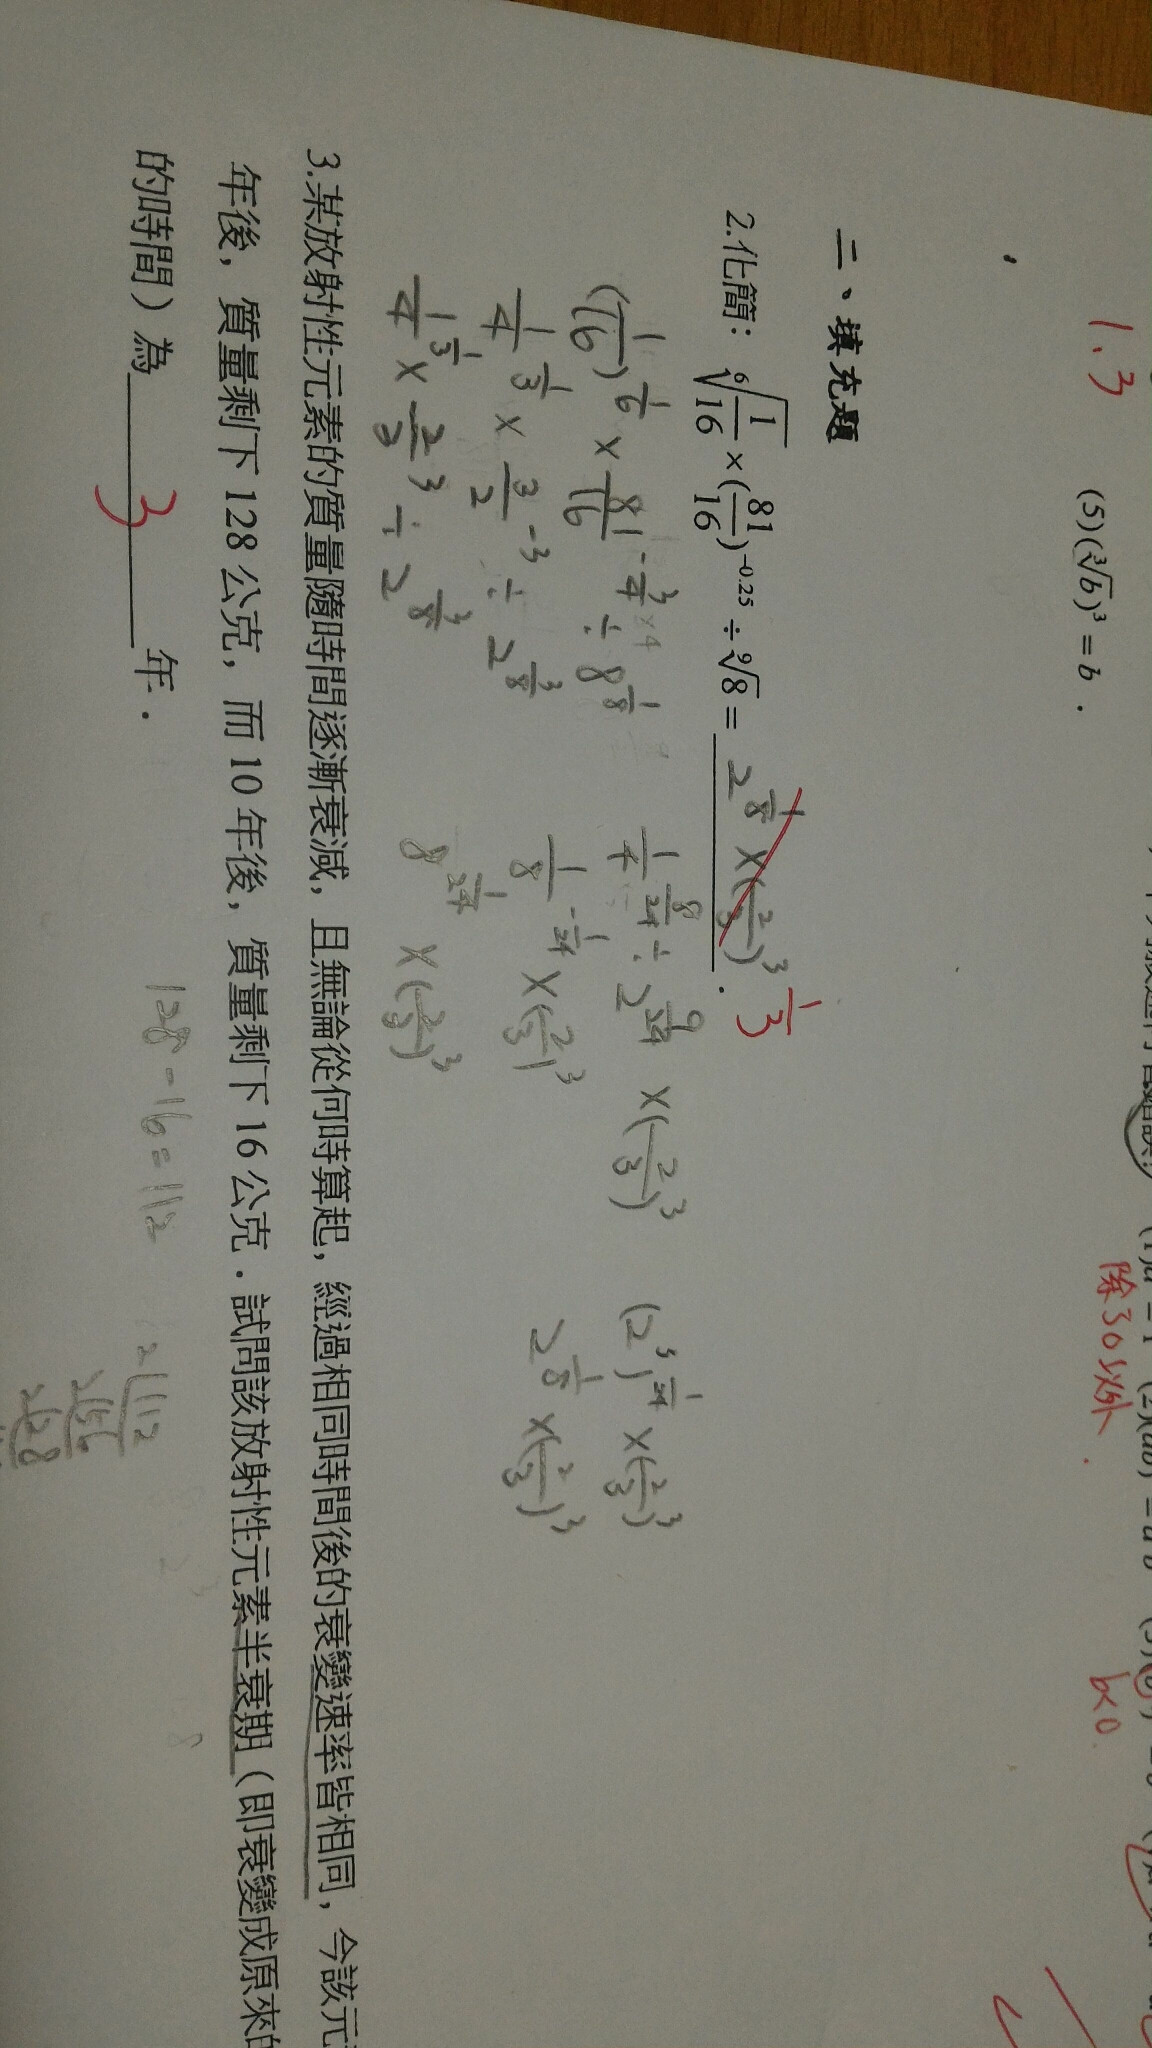 1.3
(5)(∛b)³ = b .
除30以外
b<0
二、填充題
2.化簡：⁶√(1/16) × (81/16)^-0.25 ÷ ⁹√8 = 2^(1/8) × (2/3)³ . 1/3
(1/16)^(1/6) × 81/16^(-3/4 ×4) ÷ 8^(1/8)
1/4^(1/3) × 3/2^-3 ÷ 2^(3/8)
1/4^(1/3) × 2/3^3 ÷ 2^(3/8)
1/4^(8/24) ÷ 2^(9/24) × (2/3)³
1/8^(-1/24) × (2/3)³
8^(1/24) × (2/3)³
(2³)^(1/24) × (2/3)³
2^(1/8) × (2/3)³
3.某放射性元素的質量隨時間逐漸衰減，且無論從何時算起，經過相同時間後的衰變速率皆相同，今該元
年後，質量剩下128公克，而10年後，質量剩下16公克．試問該放射性元素半衰期（即衰變成原來的
的時間）為 3 年．
128-16=112
2|112
2|56
2|28